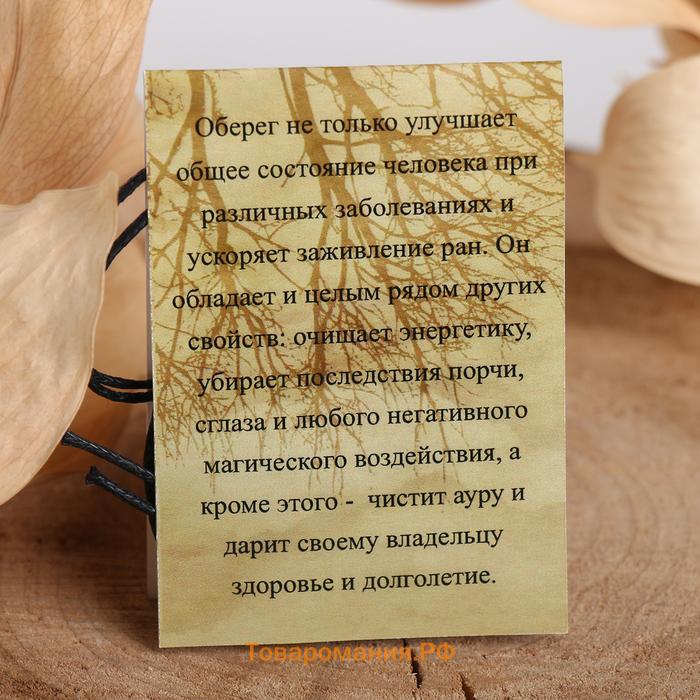 Оберег не только улучшает
общее состояние человека при
различных заболеваниях и
ускоряет заживление ран. Он
обладает и целым рядом других
свойств: очищает энергетику,
убирает последствия порчи,
сглаза и любого негативного
магического воздействия, а
кроме этого - чистит ауру и
дарит своему владельцу
здоровье и долголетие.
Товаромания.РФ